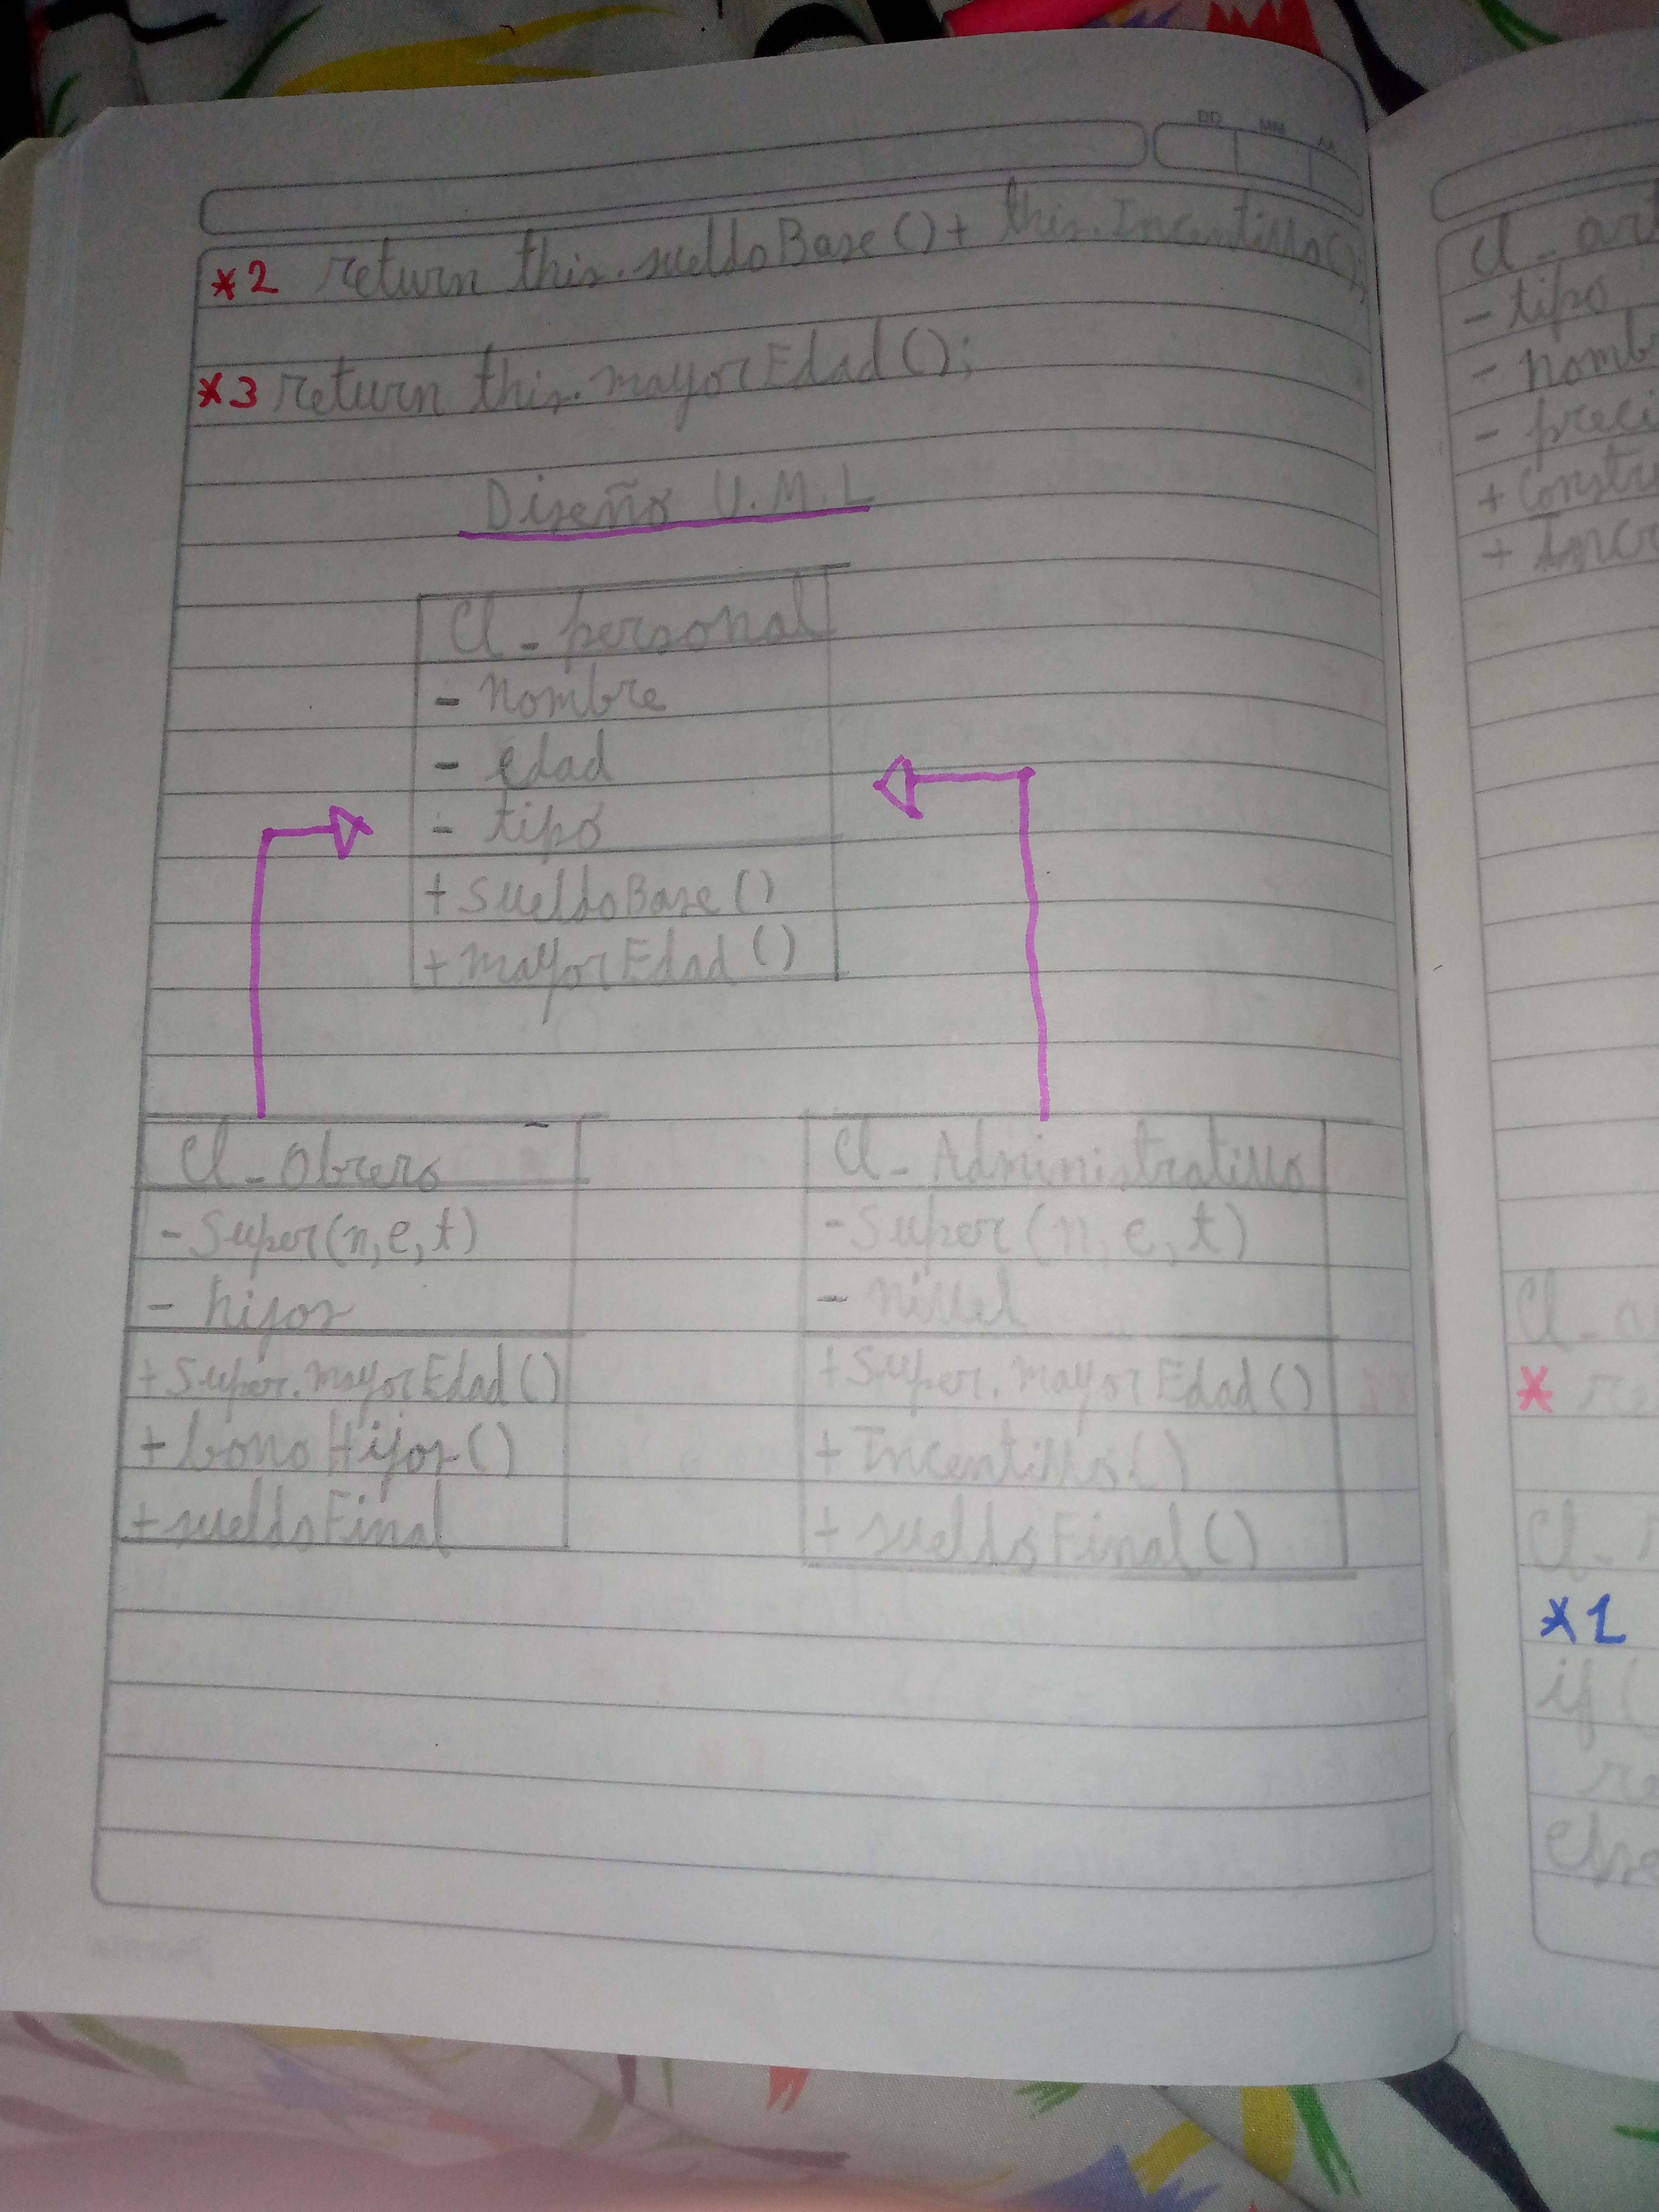 DD MM AA
*2 return this.sueldoBase() + this.Incentivo();
*3 return this.mayorEdad();
Diseño U.M.L
Cl_personal
- nombre
- edad
- tipo
+ sueldoBase()
+ mayorEdad()
Cl_Obrero
- Super(n,e,t)
- hijos
+ Super.mayorEdad()
+ bonoHijos()
+ sueldoFinal
Cl_Administrativo
- Super(n,e,t)
- nivel
+ Super.mayorEdad()
+ Incentivo()
+ sueldoFinal()
- tipo
*
*1
if (